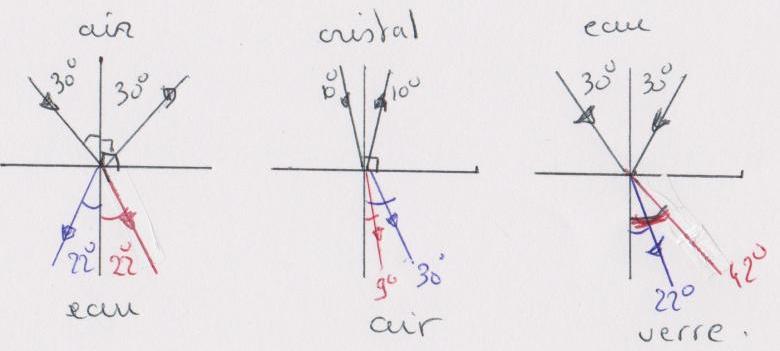 air
30° 30°
22° 22°
eau
cristal
10° 10°
9° 30°
air
eau
30° 30°
22° 42°
verre.